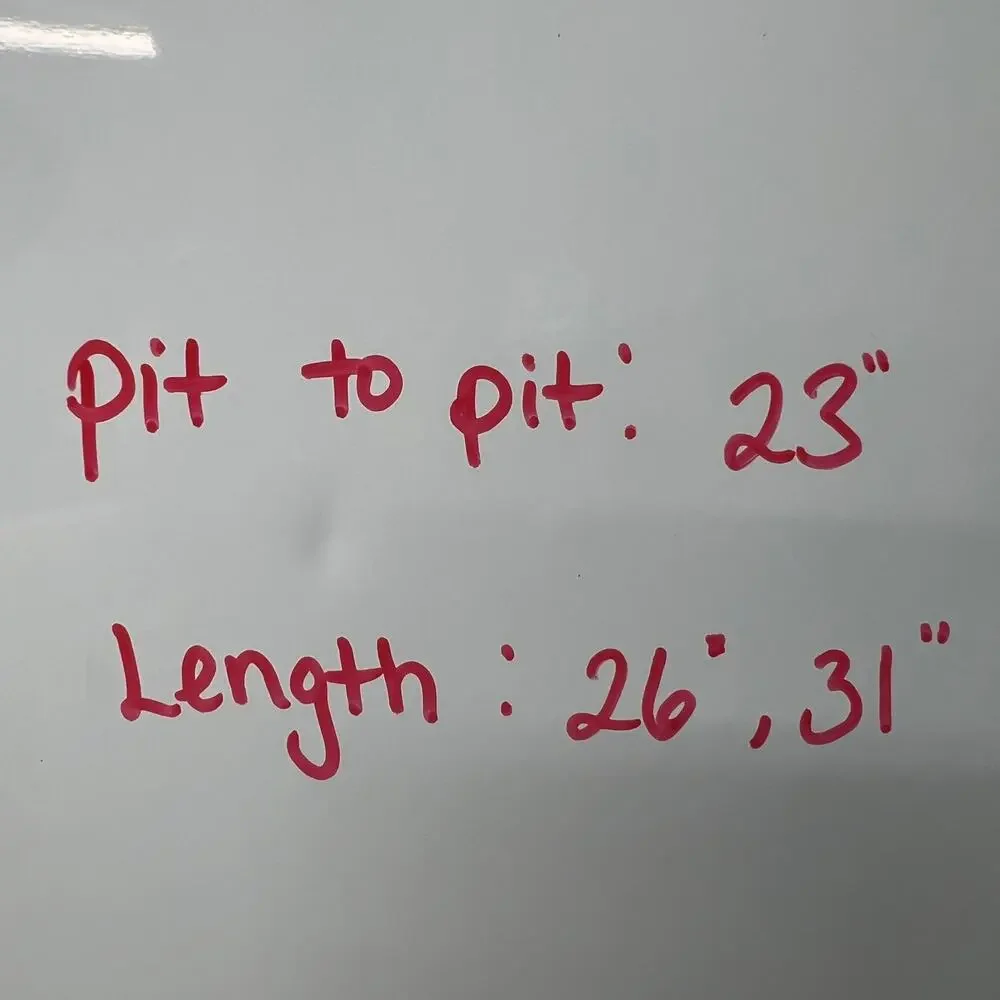 pit to pit: 23"
Length: 26", 31"